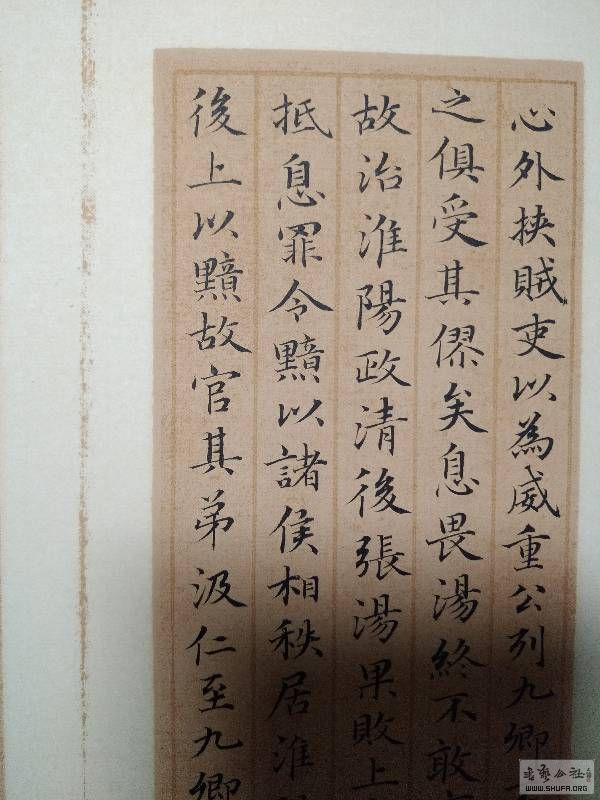 心外挾賊吏以為威重公列九卿
之俱受其僇矣息畏湯終不敢
故治淮陽政清後張湯果敗上
抵息罪令黯以諸侯相秩居淮
後上以黯故官其弟汲仁至九卿
書藝公社
WWW.SHUFA.ORG